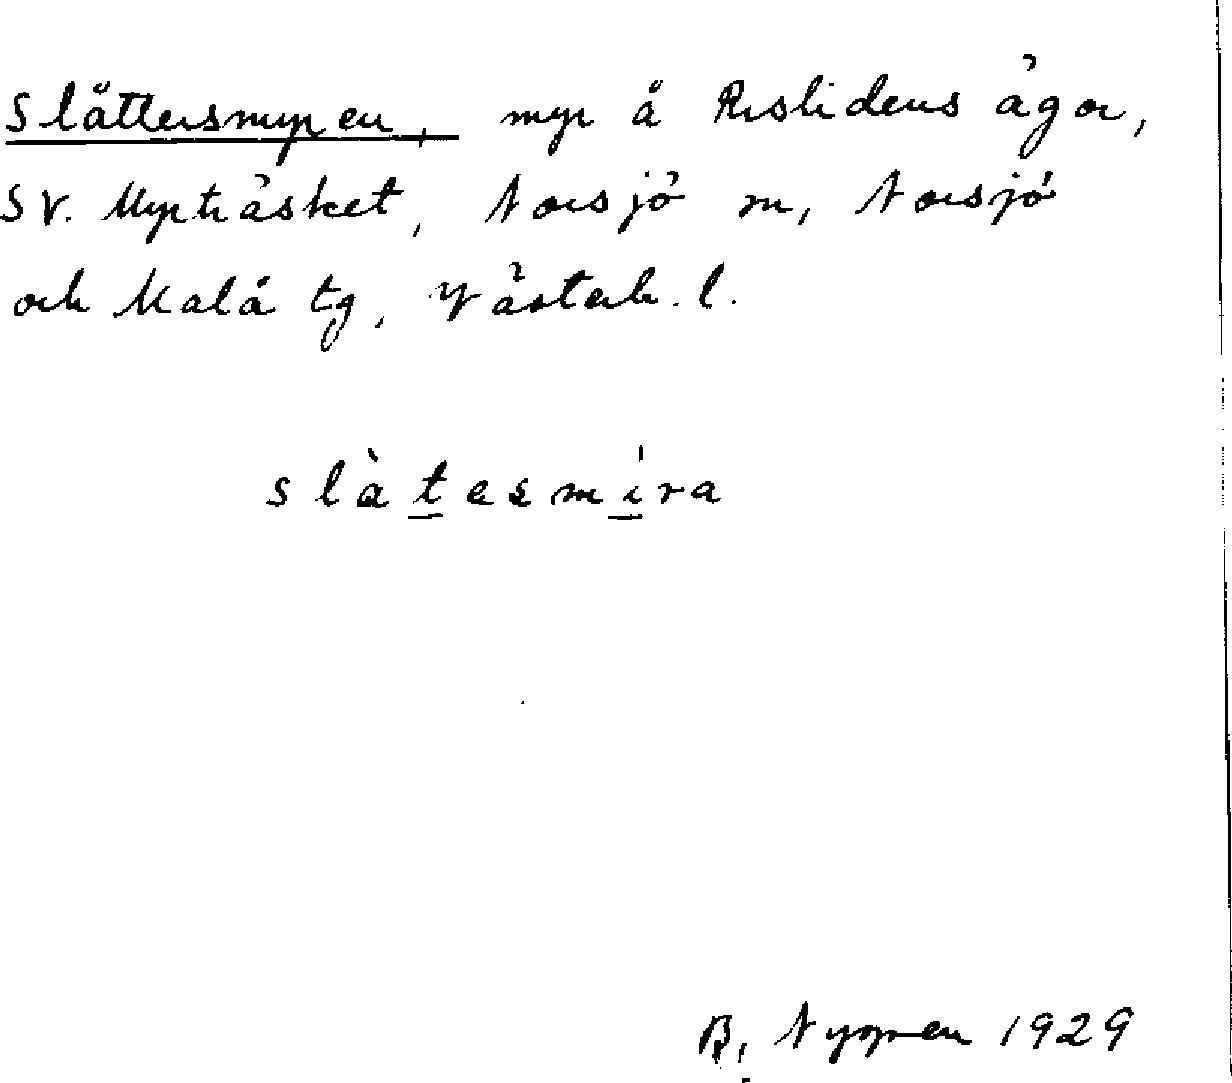 Slåttersmyren, myr å Rislidens ägor,
SV. Myrträsket, Norsjö sn, Norsjö
och Malå tg, Västerb. l.
slàtesmíra
1929